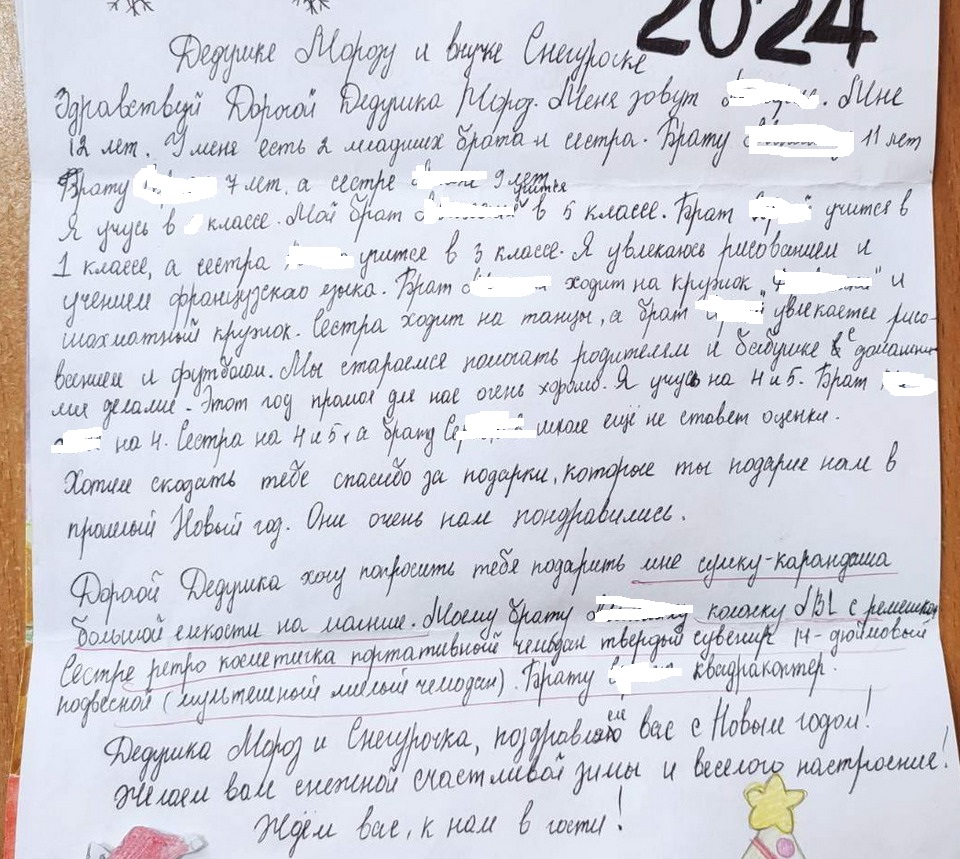 2024
Дедушке Морозу и внучке Снегуроске
Здравствуй Дорогой Дедушка Мороз. Меня зовут . Мне
12 лет. У меня есть 2 младших брата и сестра. Брату 11 лет
Брату 7 лет, а сестре 9 лет
Я учусь в классе. Мой брат учится в 5 классе. Брат учится в
1 классе, а сестра учится в 3 классе. Я увлекаюсь рисованием и
учением французского языка. Брат ходит на кружок " " и
шахматный кружок. Сестра ходит на танцы, а брат увлекается рисо-
ванием и футболом. Мы стараемся помогать родителям и бабушке с домашни-
ми делами. Этот год прошол для нас очень хорошо. Я учусь на 4 и 5. Брат
на 4. Сестра на 4 и 5, а брату школе ещё не ставят оценки.
Хотим сказать тебе спасибо за подарки, которые ты подарил нам в
прошлый Новый год. Они очень нам пондравились.
Дорогой Дедушка хочу попросить тебя подарить мне сумку-карандаша
большой емкости на молнии. Моему брату колонку JBL с ремешком
Сестре ретро косметичка портативной чемодан твердый сувенир 14-дюймовый
подвесной (мультяшной милый чемодан). Брату квадракоптер.
Дедушка Мороз и Снегурочка, поздравляем вас с Новым годом!
Желаем вам снежной счастливой зимы и веселого настроения!
Ждём вас, к нам в гости!